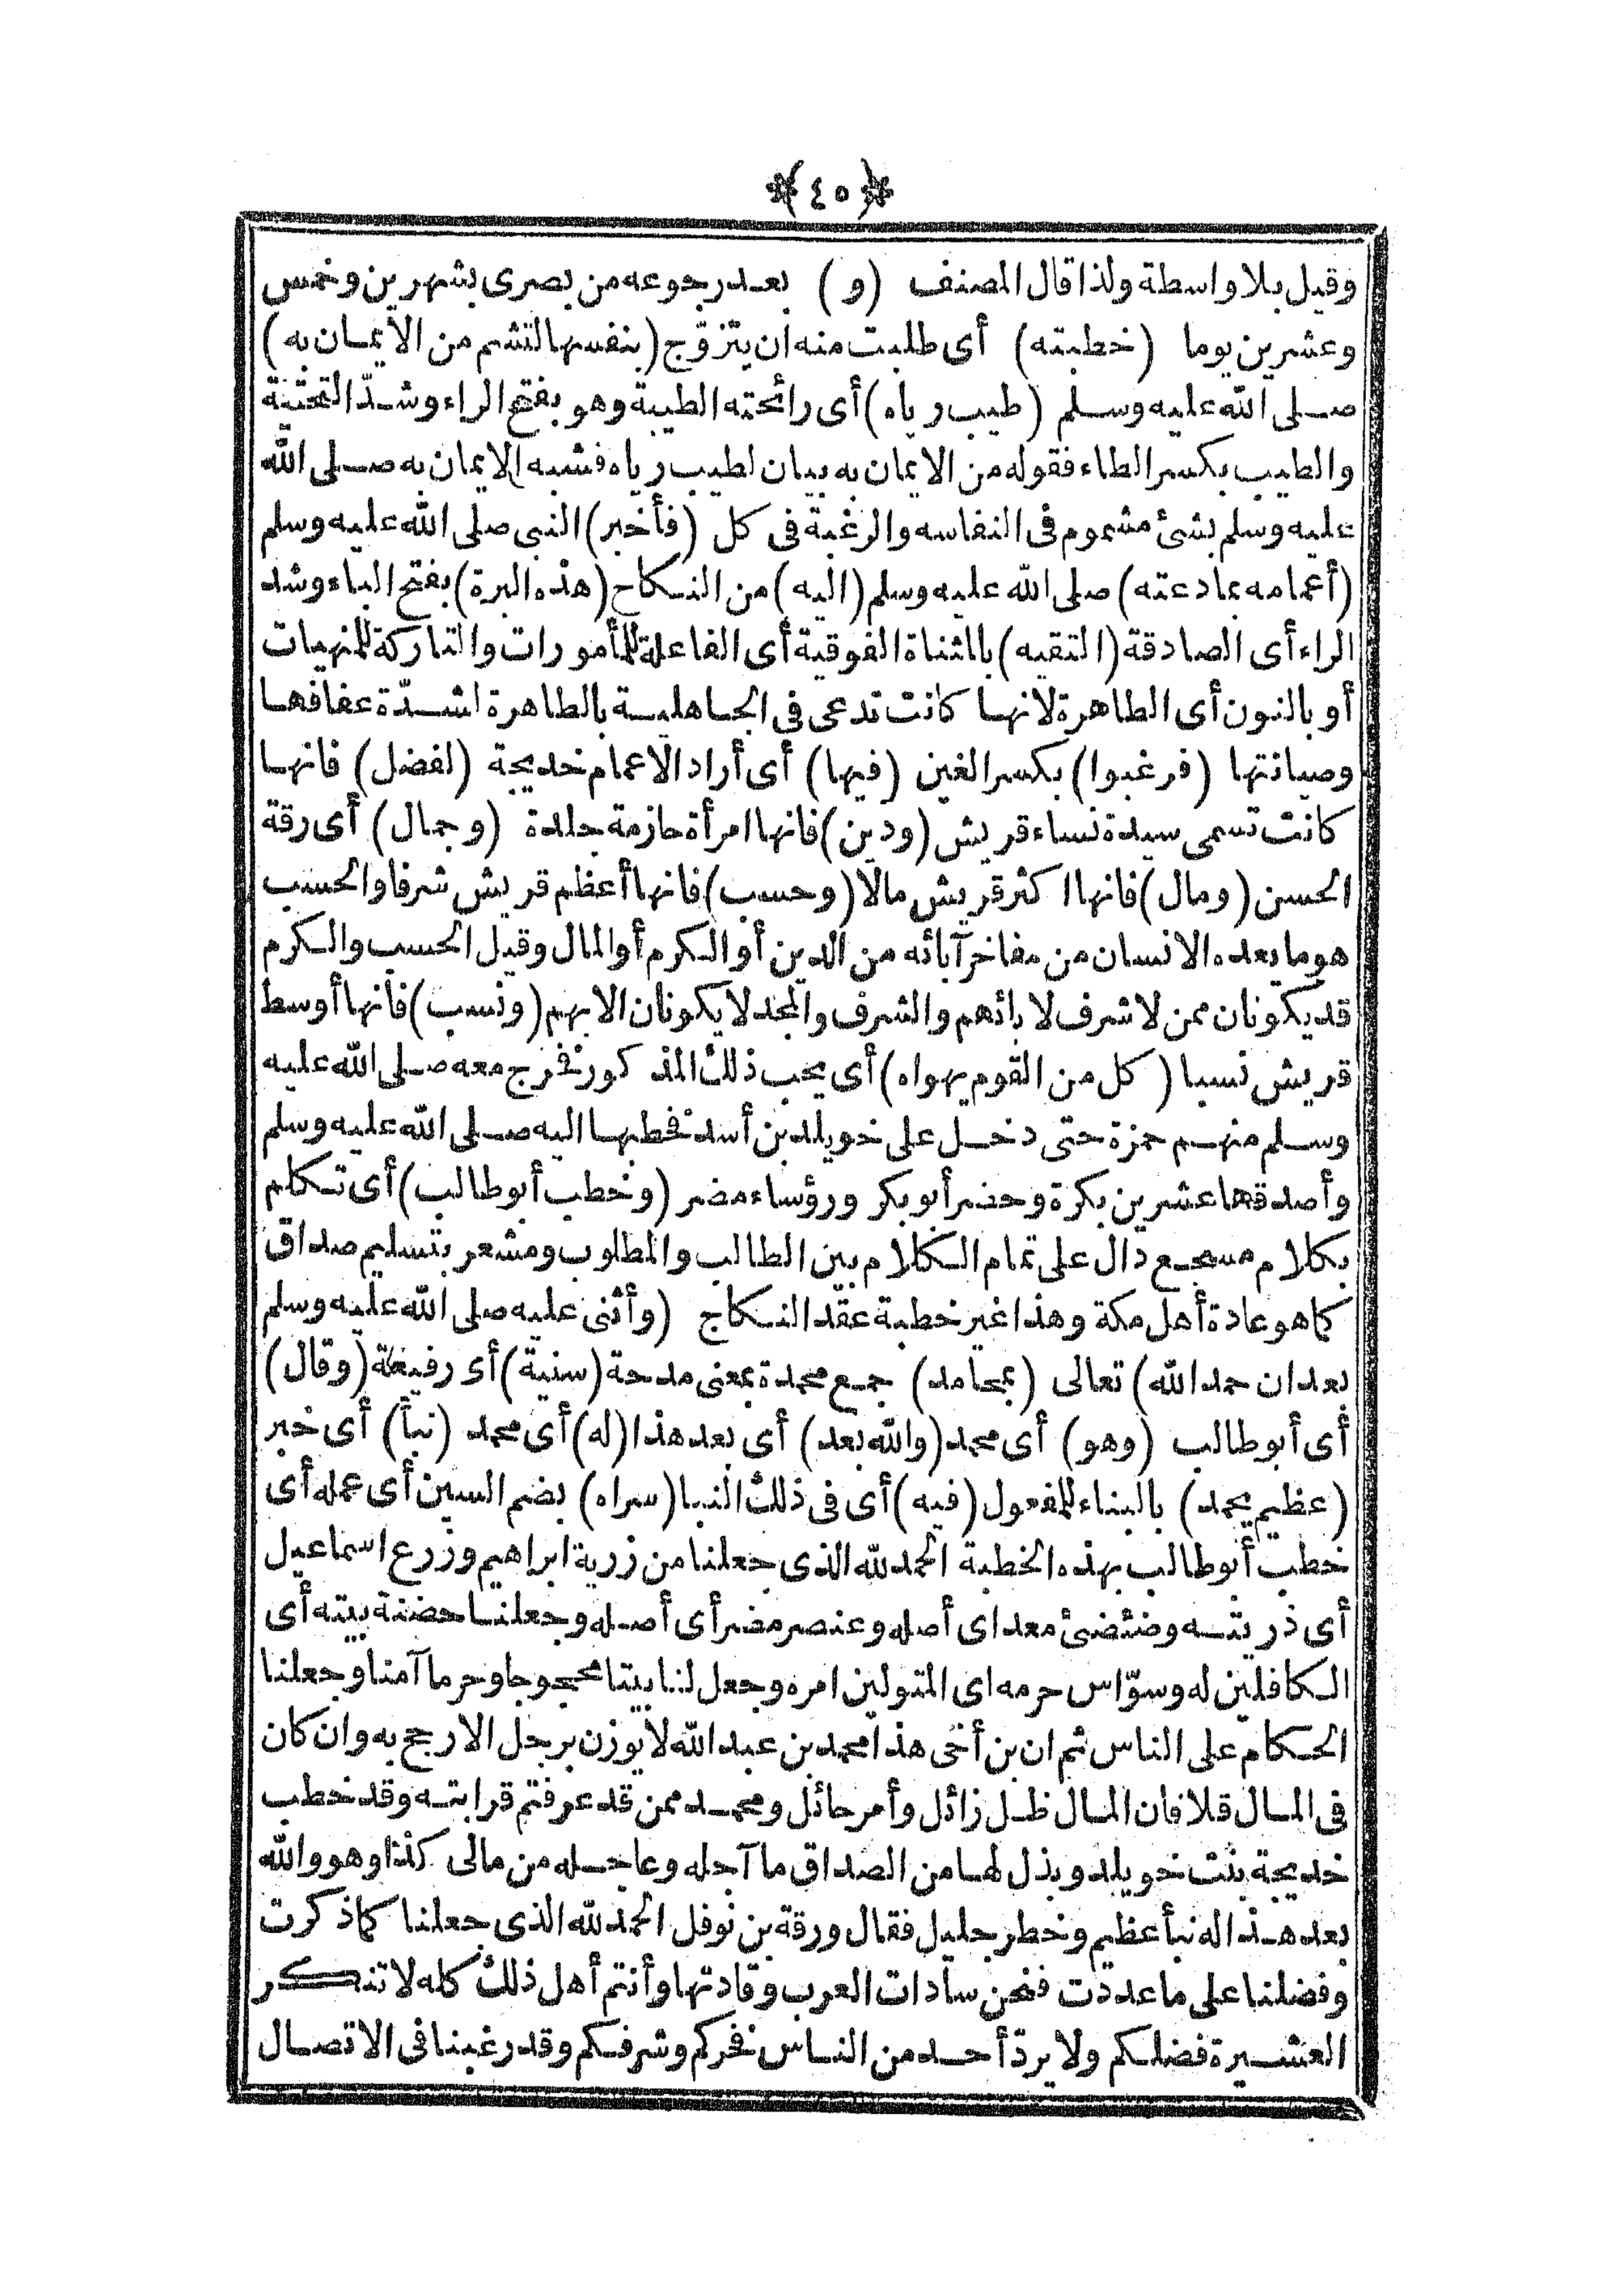 ﴿٤٥﴾
وقيل بلا واسطة ولذا قال المصنف (و) بعد رجوعه من بصرى بشهرين وخمس
وعشرين يوما (خطبته) أى طلبت منه ان يتزوّج (بنفسها لتشم من الايمان به)
صلى الله عليه وسلم (طيب رياه) أى رائحته الطيبة وهو بفتح الراء وشدّ التحتية
والطيب بكسر الطاء فقوله من الايمان به بيان لطيب رياه فشبه الايمان به صلى الله
عليه وسلم بشئ مشموم فى النفاسه والرغبة فى كل (فأخبر) النبى صلى الله عليه وسلم
(أعمامه بما دعته) صلى الله عليه وسلم (اليه) من النكاح (هذه البرة) بفتح الباء وشد
الراء أى الصادقة (التقيه) بالمثناة الفوقية أى الفاعلة للمأمورات والتاركة للمنهيات
أو بالنون أى الطاهرة لانها كانت تدعى فى الجاهلية بالطاهرة لشدّة عفافها
وصيانتها (فرغبوا) بكسر الغين (فيها) أى أراد الاعمام خديجة (لفضل) فانها
كانت تسمى سيدة نساء قريش (ودين) فانها امرأة حازمة جلدة (وجمال) أى رقة
الحسن (ومال) فانها اكثر قريش مالا (وحسب) فانها أعظم قريش شرفا والحسب
هو ما يعده الانسان من مفاخر آبائه من الدين أو الكرم أو المال وقيل الحسب والكرم
قد يكونان ممن لا شرف لابائهم والشرف والمجد لا يكونان الا بهم (ونسب) فانها أوسط
قريش نسبا (كل من القوم يهواه) أى يحب ذلك المذكور نفرج معه صلى الله عليه
وسلم منهم حمزة حتى دخل على خويلد بن أسد فخطبها اليه صلى الله عليه وسلم
وأصدقها عشرين بكرة وحضر أبو بكر ورؤساء مضر (وخطب أبو طالب) أى تكلم
بكلام مسجع دال على تمام الكلام بين الطالب والمطلوب ومشعر بتسليم صداق
كما هو عادة أهل مكة وهذا غير خطبة عقد النكاح (وأثنى عليه صلى الله عليه وسلم
بعد ان حمد الله) تعالى (بمحامد) جمع محمدة بمعنى مدحة (سنية) أى رفيعة (وقال)
أى أبو طالب (وهو) أى محمد (والله بعد) أى بعد هذا (له) أى محمد (نبأ) أى خبر
(عظيم يحمد) بالبناء للمفعول (فيه) أى فى ذلك النبا (سراه) بضم السين أى عمله أى
خطب أبو طالب بهذه الخطبة الحمد لله الذى جعلنا من زرية ابراهيم وزرع اسماعيل
أى ذريته وضئضئ معد اى أصله وعنصر مضر أى أصله وجعلنا حضنة بيته أى
الكافلين له وسوّاس حرمه اى المتولين امره وجعل لنا بيتا محجوجا وحرما آمنا وجعلنا
الحكام على الناس ثم ان بن أخى هذا محمد بن عبد الله لا يوزن برجل الا رجح به وان كان
فى المال قلا فان المال ظل زائل وأمر حائل ومحمد ممن قد عرفتم قرابته وقد خطب
خديجة بنت خويلد وبذل لها من الصداق ما آجله وعاجله من مالى كذا وهو والله
بعد هذا له نبأ عظيم وخطر جليل فقال ورقة بن نوفل الحمد لله الذى جعلنا كما ذكرت
وفضلنا على ما عددت فنحن سادات العرب وقادتها وأنتم أهل ذلك كله لا تنكر
العشيرة فضلكم ولا يردّ أحد من الناس فخركم وشرفكم وقد رغبنا فى الاتصال